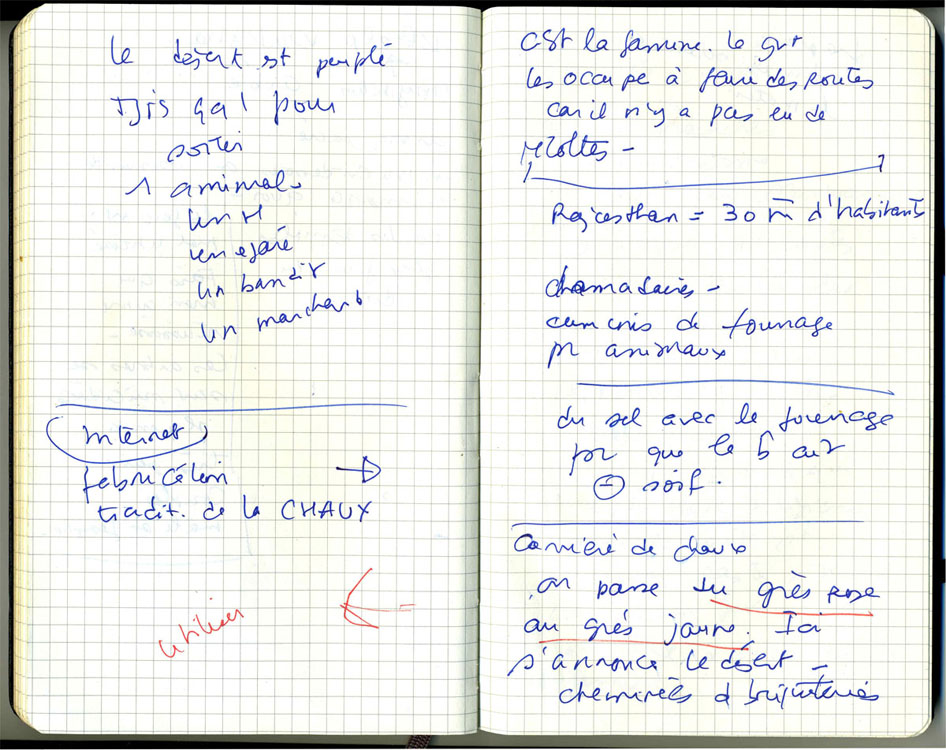 le désert est peuplé
Tjrs qq 1 pour
sortir
1 animal.
un H
un égaré
un bandit
un marchand
Internet
fabrication
tradit. de la CHAUX
utiliser
C'est la famine. Le gvt
les occupe à faire des routes
car il n'y a pas eu de
récoltes -
Rajasthan = 30 m d'habitants
dromadaires -
camions de fourrage
pr animaux
du sel avec le fourrage
pr que le b ait
⊖ soif.
Carrière de chaux
on passe du grès rose
au grès jaune. Ici
s'annonce le désert -
cheminées d briqueteries